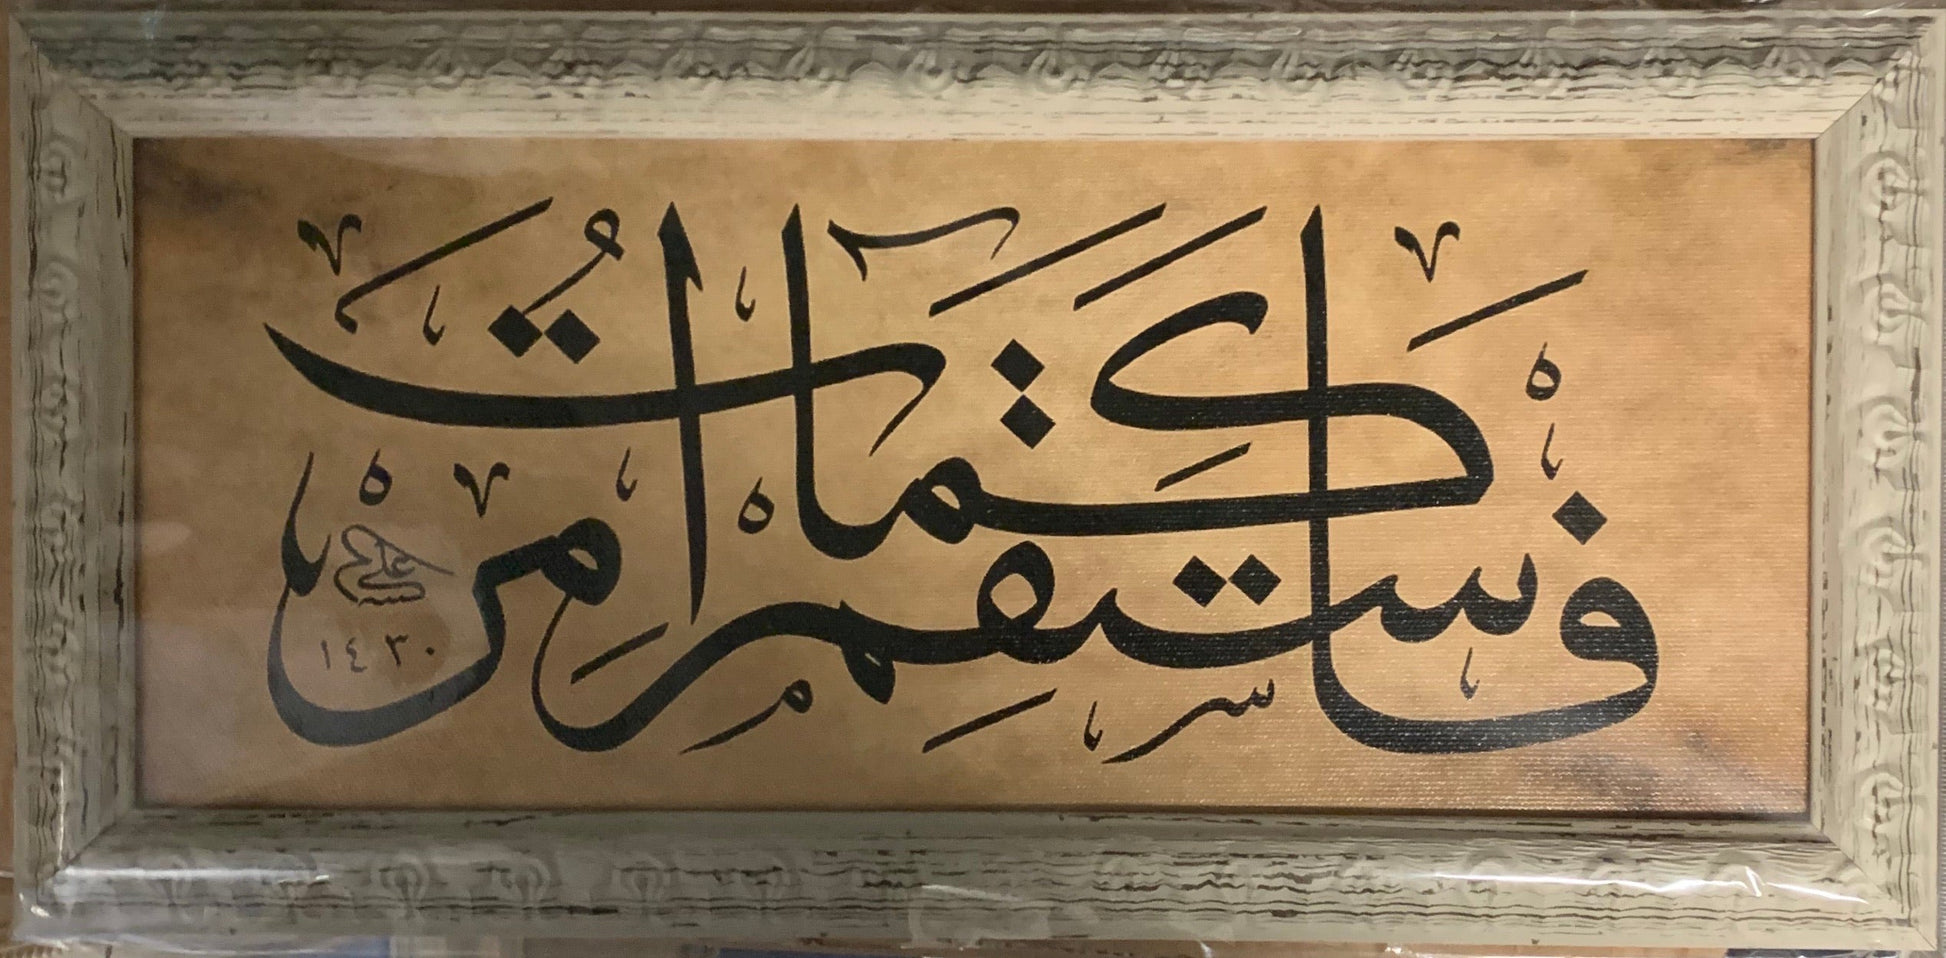 فَاسْتَقِمْ كَمَا أُمِرْتَ
١٤٣٠